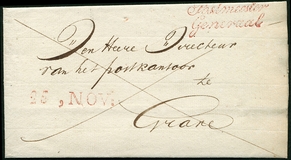 Postmeester
Generaal
Den Heere Directeur
van het postkantoor
te
23 NOV.
Grave